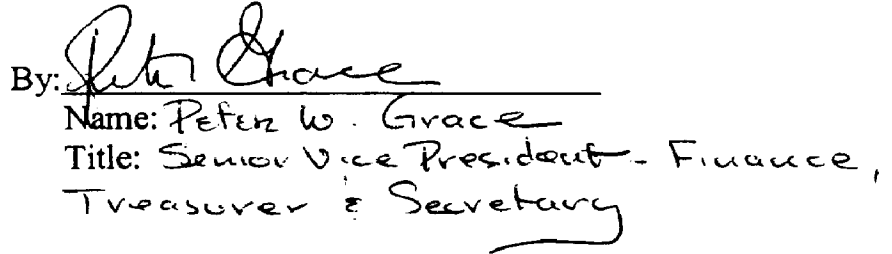 By: Peter Grace
Name: Peter W. Grace
Title: Senior Vice President - Finance,
Treasurer & Secretary